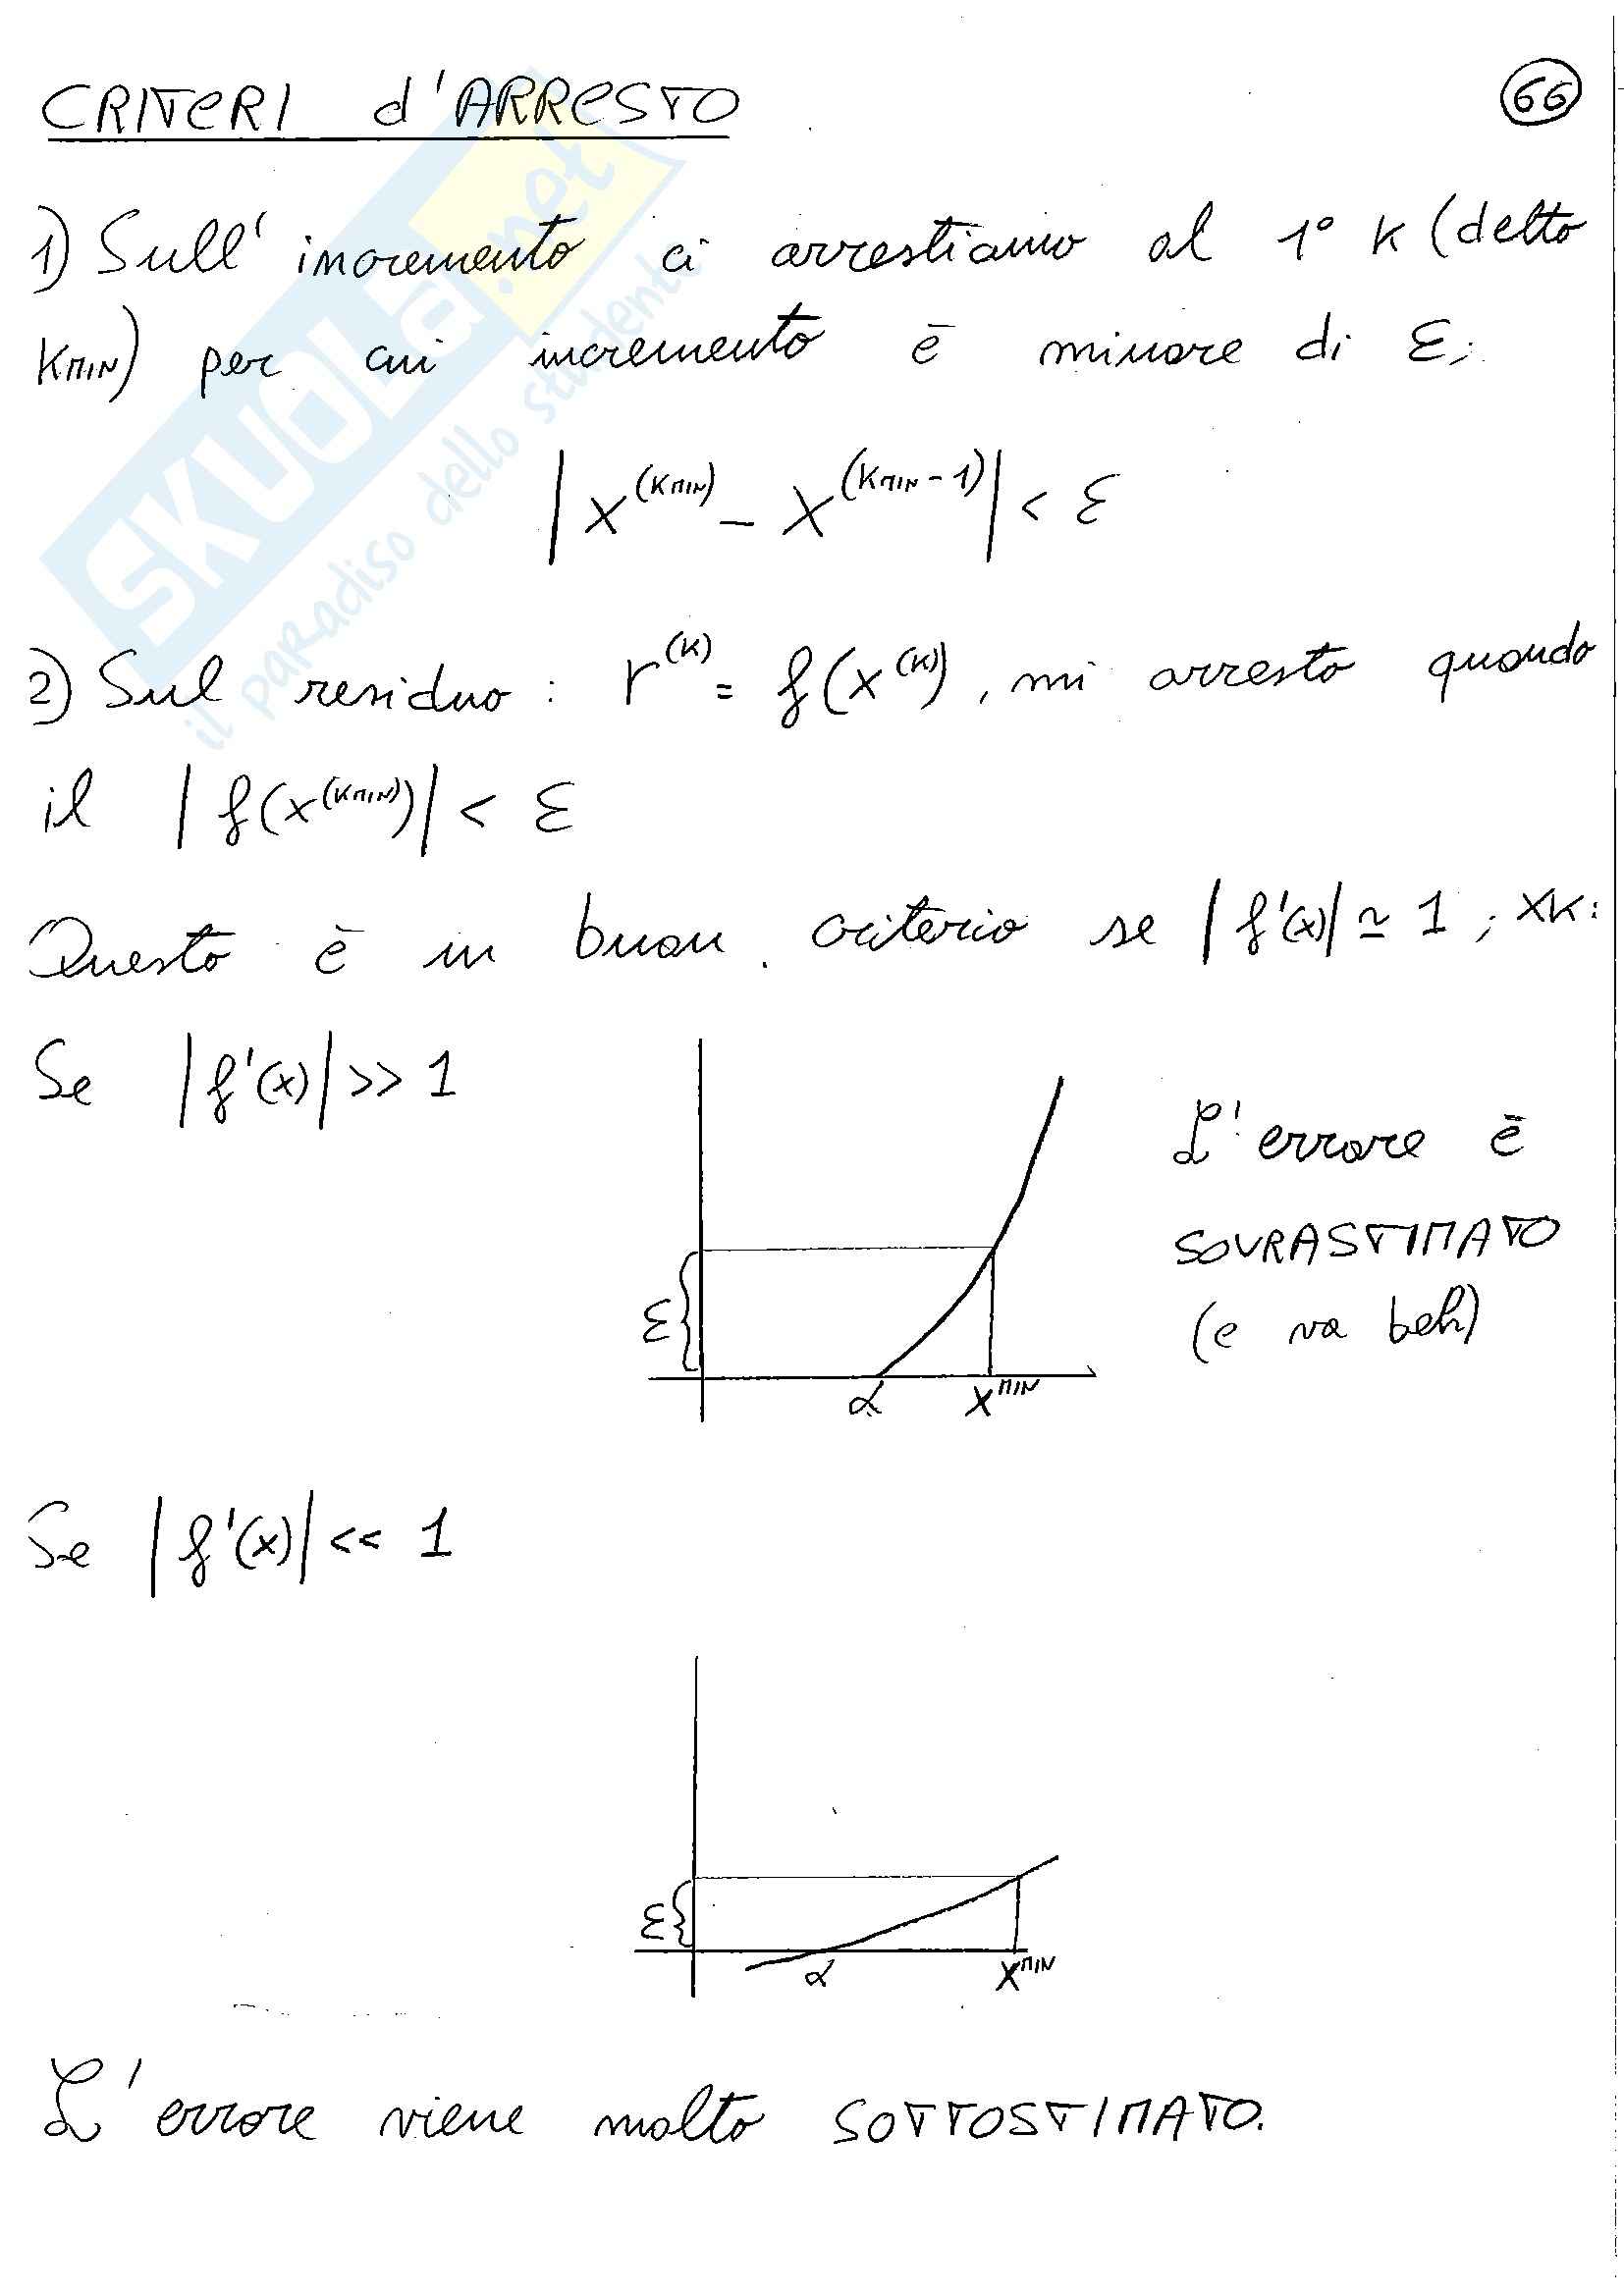 CRITERI d'ARRESTO
66
1) Sull' incremento ci arrestiamo al 1° K (detto
KMIN) per cui incremento è minore di ε;
|x^(KMIN) - x^(KMIN-1)| < ε
2) Sul residuo: r^(K) = f(x^(K)), mi arresto quando
il |f(x^(KMIN))| < ε
Questo è un buon criterio se |f'(x)| ≃ 1; XK:
Se |f'(x)| >> 1
L'errore è
SOVRASTIMATO
(e va beh)
ε
α
X^MIN
Se |f'(x)| << 1
ε
α
X^MIN
L'errore viene molto SOTTOSTIMATO.
SKUOLA.net
il paradiso dello studenti